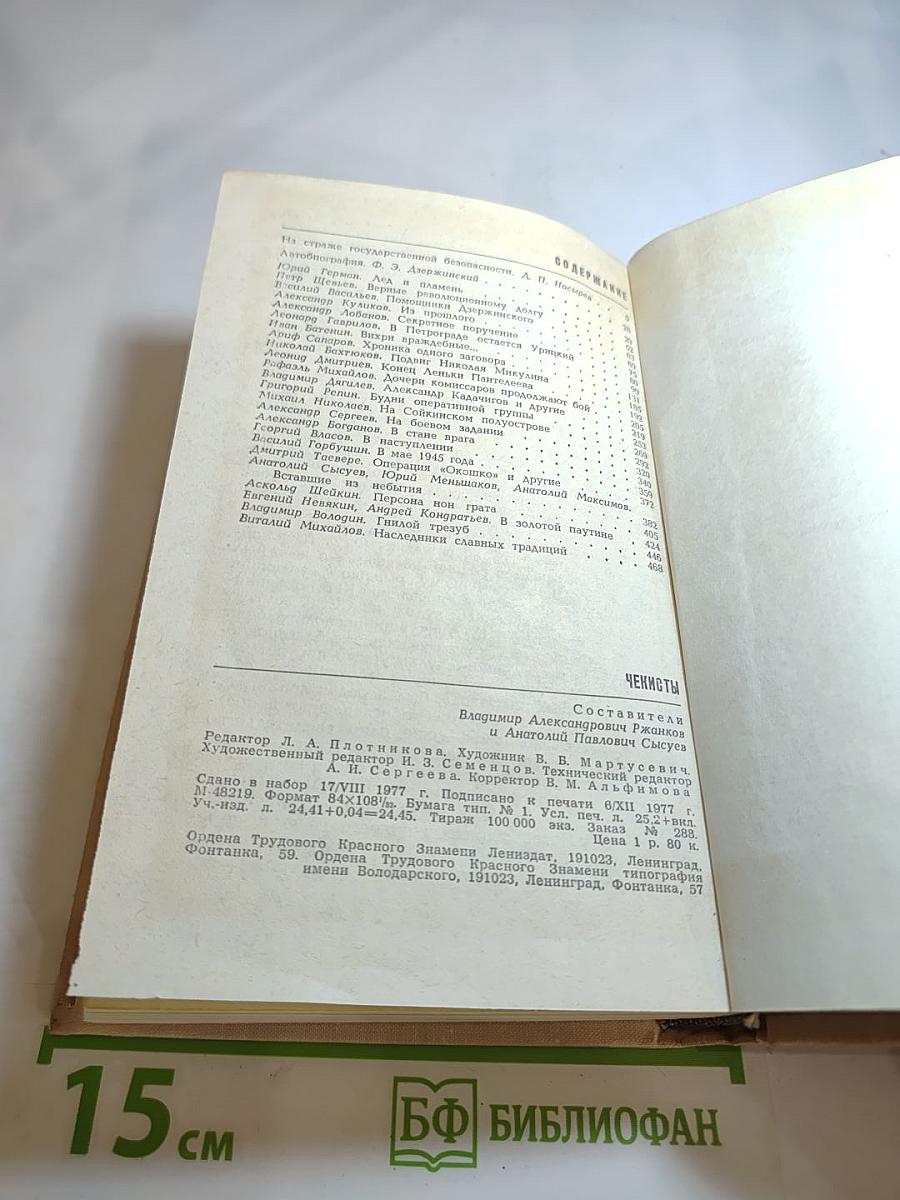 СОДЕРЖАНИЕ
На страже государственной безопасности. Д. П. Носырев
Автобиография. Ф. Э. Дзержинский
Юрий Герман. Лед и пламень
Петр Щевьев. Верные революционному долгу
Василий Васильев. Помощники Дзержинского
Александр Куликов. Из прошлого
Александр Лобанов. Секретное поручение
Леонард Гаврилов. В Петрограде остается Урицкий
Иван Батенин. Вихри враждебные...
Ариф Сапаров. Хроника одного заговора
Николай Бахтюков. Подвиг Николая Микулина
Леонид Дмитриев. Конец Леньки Пантелеева
Рафаэль Михайлов. Дочери комиссаров продолжают бой
Владимир Дягилев. Александр Кадачигов и другие
Григорий Репин. Будни оперативной группы
Михаил Николаев. На Сойкинском полуострове
Александр Сергеев. На боевом задании
Александр Богданов. В стане врага
Георгий Власов. В наступлении
Василий Горбушин. В мае 1945 года
Дмитрий Таевере. Операция «Окошко» и другие
Анатолий Сысуев, Юрий Меньшаков, Анатолий Максимов.
Вставшие из небытия 382
Аскольд Шейкин. Персона нон грата 405
Евгений Невякин, Андрей Кондратьев. В золотой паутине 424
Владимир Володин. Гнилой трезуб 446
Виталий Михайлов. Наследники славных традиций 468
ЧЕКИСТЫ
Составители
Владимир Александрович Ржанков
и Анатолий Павлович Сысуев
Редактор Л. А. Плотникова. Художник В. Б. Мартусевич.
Художественный редактор И. З. Семенцов. Технический редактор
А. И. Сергеева. Корректор В. М. Альфимова
Сдано в набор 17/VIII 1977 г. Подписано к печати 6/XII 1977 г.
М-48219. Формат 84×108¹/₃₂. Бумага тип. № 1. Усл. печ. л. 25,2+вкл.
Уч.-изд. л. 24,41+0,04=24,45. Тираж 100 000 экз. Заказ № 288.
Цена 1 р. 80 к.
Ордена Трудового Красного Знамени Лениздат, 191023, Ленинград,
Фонтанка, 59. Ордена Трудового Красного Знамени типография
имени Володарского, 191023, Ленинград, Фонтанка, 57
15 см
БФ БИБЛИОФАН